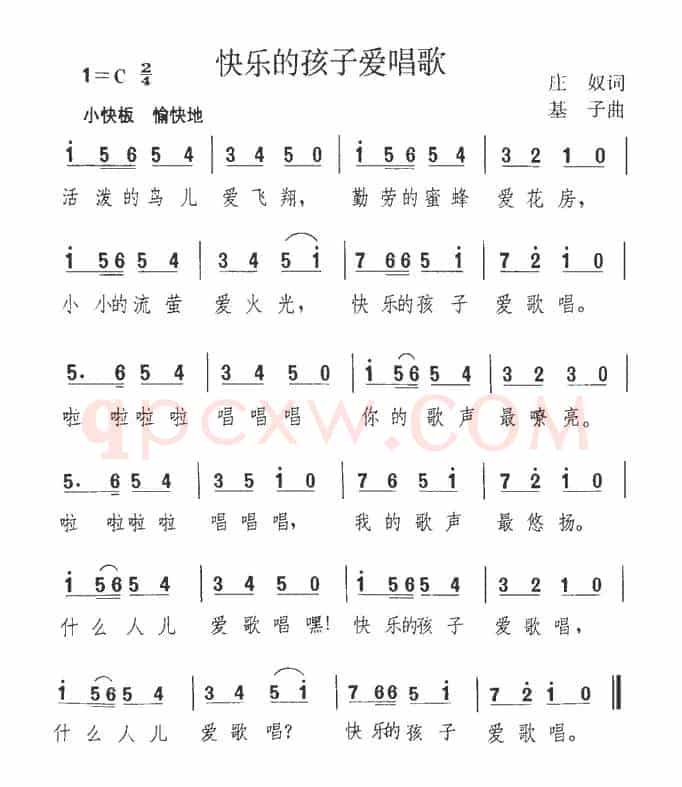 快乐的孩子爱唱歌
1=C 2/4
庄 奴词
小快板 愉快地
基 子曲
i 56 5 4 | 3 4 5 0 | i 56 5 4 | 3 2 1 0 |
活 泼的鸟儿 爱飞翔, 勤劳的蜜蜂 爱花房,
i 56 5 4 | 3 4 5 i | 7 66 5 i | 7 2̇ i 0 |
小 小的流萤 爱火光, 快乐的孩子 爱歌唱。
5. 6 5 4 | 3 4 5 0 | i 56 5 4 | 3 2 3 0 |
啦 啦啦啦 唱唱唱 你的歌声 最嘹亮。
qpcxw.COM
5. 6 5 4 | 3 5 i 0 | 7 6 5 i | 7 2̇ i 0 |
啦 啦啦啦 唱唱唱, 我的歌声 最悠扬。
i 56 5 4 | 3 4 5 0 | i 56 5 4 | 3 2 1 0 |
什么人儿 爱歌唱嘿! 快乐的孩子 爱歌唱,
i 56 5 4 | 3 4 5 i | 7 66 5 i | 7 2̇ i 0 ‖
什么人儿 爱歌唱? 快乐的孩子 爱歌唱。